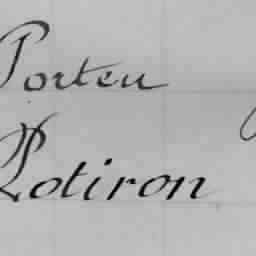 Porteu
Potiron